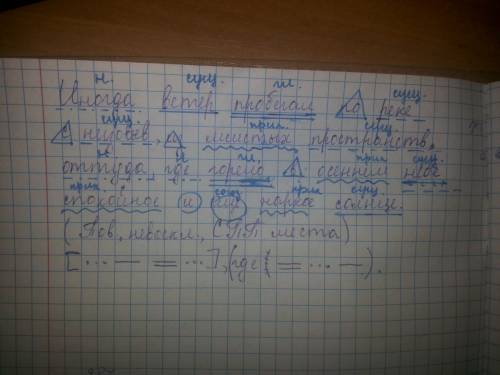 н сущ. гл. сущ.
Иногда ветер пробегал по реке
сущ. прил. сущ.
с низовьев, из мглистых пространств,
н н гл. прил. сущ.
оттуда, где горело в осеннем небе
прил. прил. сущ.
спокойное и ещё жаркое солнце.
(Пов., невоскл., СПП места)
[... — = ...], (где = ... —).